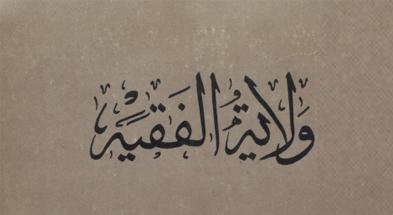 وَلاية الفَقيه